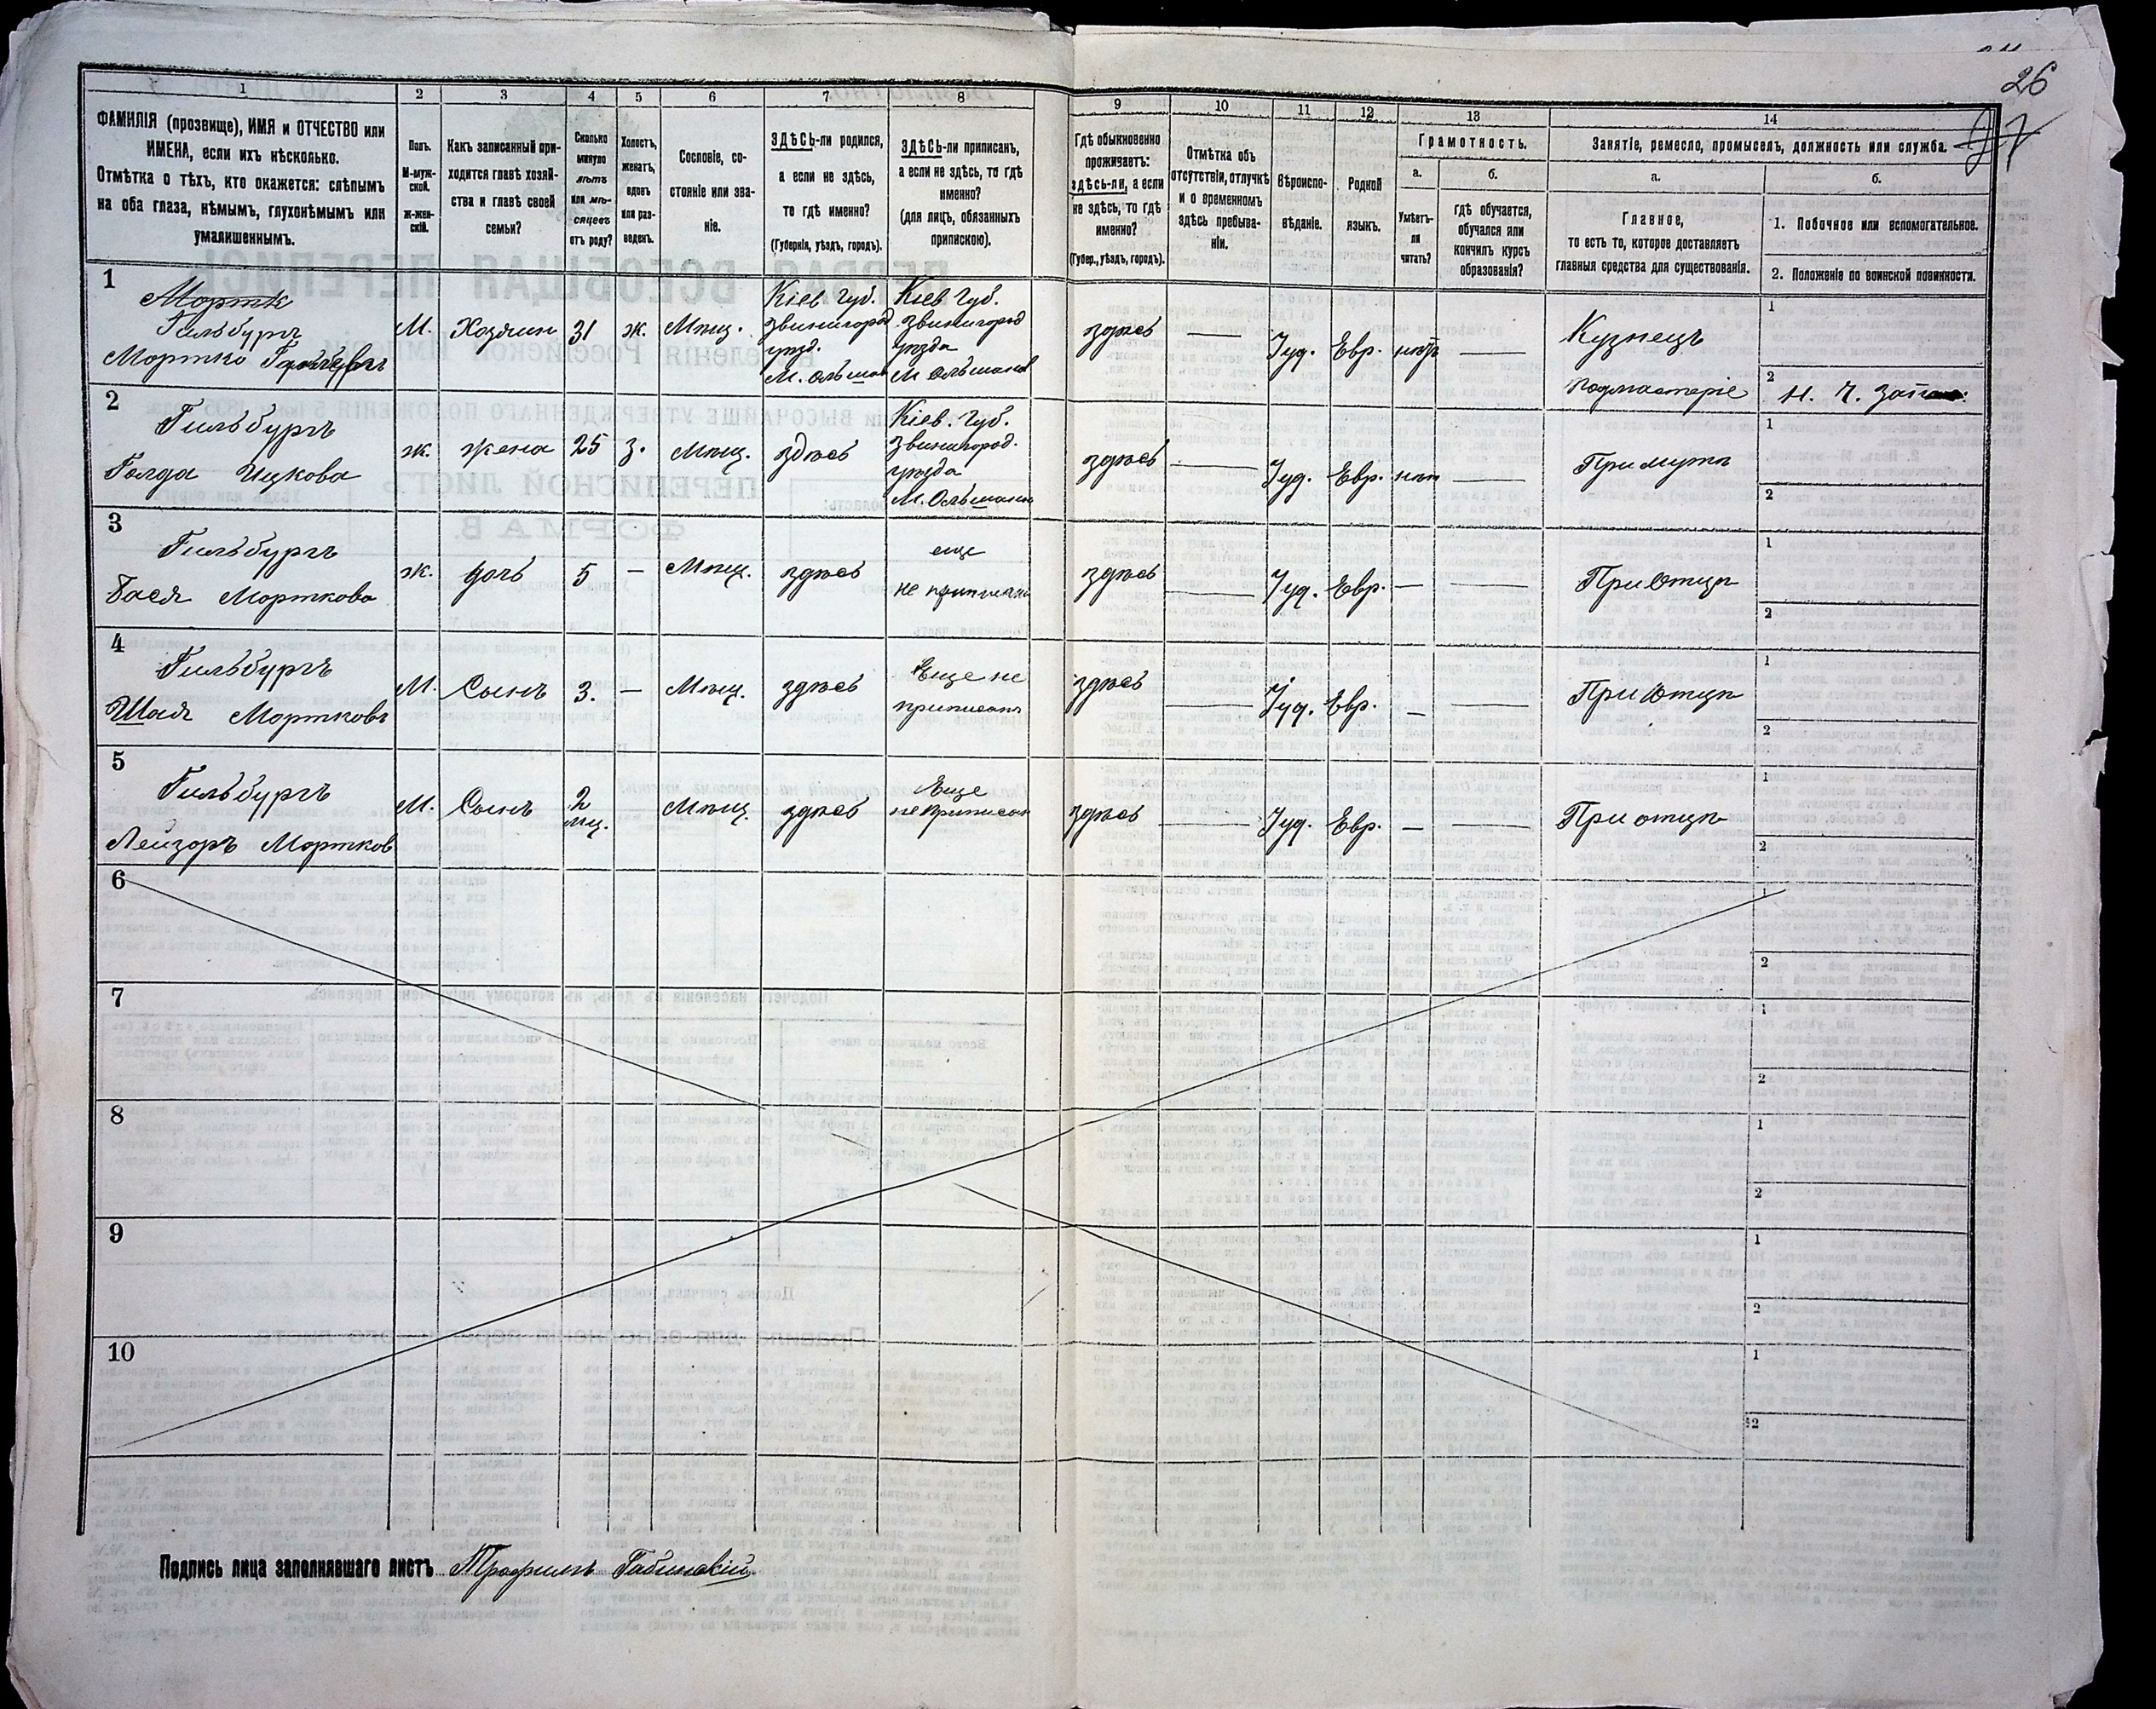 26
27
1
2
3
4
5
6
7
8
9
10
11
12
13
14
ФАМИЛІЯ (прозвище), ИМЯ и ОТЧЕСТВО или
ИМЕНА, если ихъ нѣсколько.
Отмѣтка о тѣхъ, кто окажется: слѣпымъ
на оба глаза, нѣмымъ, глухонѣмымъ или
умалишеннымъ.
Полъ.
М-муж-
ской.
ж-жен-
скій.
Какъ записанный при-
ходится главѣ хозяй-
ства и главѣ своей
семьи?
Сколько
минуло
лѣтъ
или мѣ-
сяцевъ
отъ роду?
Холостъ,
женатъ,
вдовъ
или раз-
веденъ.
Сословіе, со-
стояніе или зва-
ніе.
ЗДѢСЬ-ли родился,
а если не здѣсь,
то гдѣ именно?
(Губернія, уѣздъ, городъ).
ЗДѢСЬ-ли приписанъ,
а если не здѣсь, то гдѣ
именно?
(для лицъ, обязанныхъ
припискою).
Гдѣ обыкновенно
проживаетъ:
здѣсь-ли, а если
не здѣсь, то гдѣ
именно?
(Губер., уѣздъ, городъ).
Отмѣтка объ
отсутствіи, отлучкѣ
и о временномъ
здѣсь пребыва-
ніи.
Вѣроиспо-
вѣданіе.
Родной
языкъ.
Грамотность.
а.
Умѣетъ-
ли
читать?
б.
гдѣ обучается,
обучался или
кончилъ курсъ
образованія?
Занятіе, ремесло, промыселъ, должность или служба.
а.
Главное,
то есть то, которое доставляетъ
главныя средства для существованія.
б.
1. Побочное или вспомогательное.
2. Положеніе по воинской повинности.
1
Мортк
Гильбургъ
Мортко
М.
Хозяинъ
31
ж.
Мѣщ.
Кіев Губ.
Звинигород
уѣзд.
М. Ольшан
Кіев Губ.
Звинигород
уѣзда
М Ольшана
здѣсь
—
Іуд.
Евр.
нѣтъ
—
Кузнецъ
подмастеріе
1
2
2
Гильбургъ
Голда Ицкова
ж.
жена
25
з.
Мѣщ.
здѣсь
Кіев. Губ.
Звинигород.
уѣзда
М. Ольшана
здѣсь
—
Іуд.
Евр.
нѣт
—
При мужѣ
1
2
3
Гильбургъ
Бася Морткова
ж.
дочь
5
—
Мѣщ.
здѣсь
еще
не приписана
здѣсь
—
Іуд.
Евр.
—
—
При Отцѣ
1
2
4
Гильбургъ
Шая Мортковъ
М.
Сынъ
3.
—
Мѣщ.
здѣсь
Еще не
приписанъ
здѣсь
—
Іуд.
Евр.
—
—
При Отцѣ
1
2
5
Гильбургъ
Лейзоръ Мортков
М.
Сынъ
2
мѣ.
Мѣщ.
здѣсь
Еще
не приписан
здѣсь
—
Іуд.
Евр.
—
—
При отцѣ
1
2
6
1
2
7
1
2
8
1
2
9
1
2
10
1
2
Подпись лица заполнявшаго листъ Трофимъ